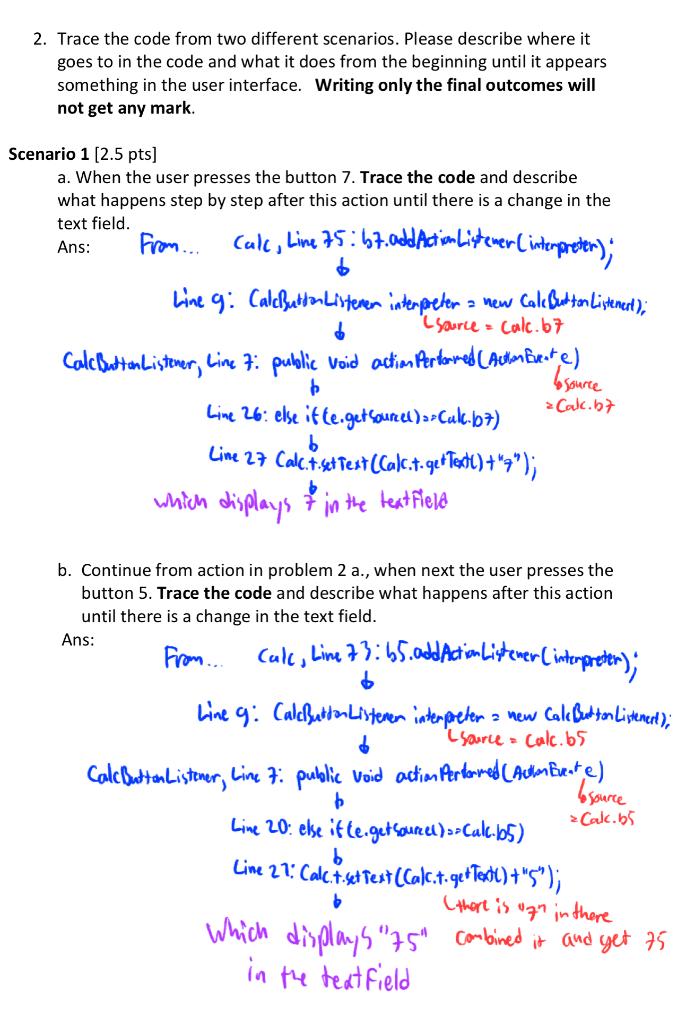 2. Trace the code from two different scenarios. Please describe where it
goes to in the code and what it does from the beginning until it appears
something in the user interface. Writing only the final outcomes will
not get any mark.
Scenario 1 [2.5 pts]
a. When the user presses the button 7. Trace the code and describe
what happens step by step after this action until there is a change in the
text field.
Ans: From... Calc, Line 75: b7.addActionListener(interpreter);
Line 9: CalcButtonListener interpreter = new CalcButtonListener();
source = Calc.b7
CalcButtonListener, Line 7: public void actionPerformed(ActionEvent e)
source
= Calc.b7
Line 26: else if(e.getSource()==Calc.b7)
Line 27 Calc.t.setText(Calc.t.getText()+"7");
which displays 7 in the textField
b. Continue from action in problem 2 a., when next the user presses the
button 5. Trace the code and describe what happens after this action
until there is a change in the text field.
Ans:
From... Calc, Line 73: b5.addActionListener(interpreter);
Line 9: CalcButtonListener interpreter = new CalcButtonListener();
source = Calc.b5
CalcButtonListener, Line 7: public void actionPerformed(ActionEvent e)
source
= Calc.b5
Line 20: else if(e.getSource()==Calc.b5)
Line 21: Calc.t.setText(Calc.t.getText()+"5");
there is "7" in there
Which displays "75" combined it and get 75
in the textField